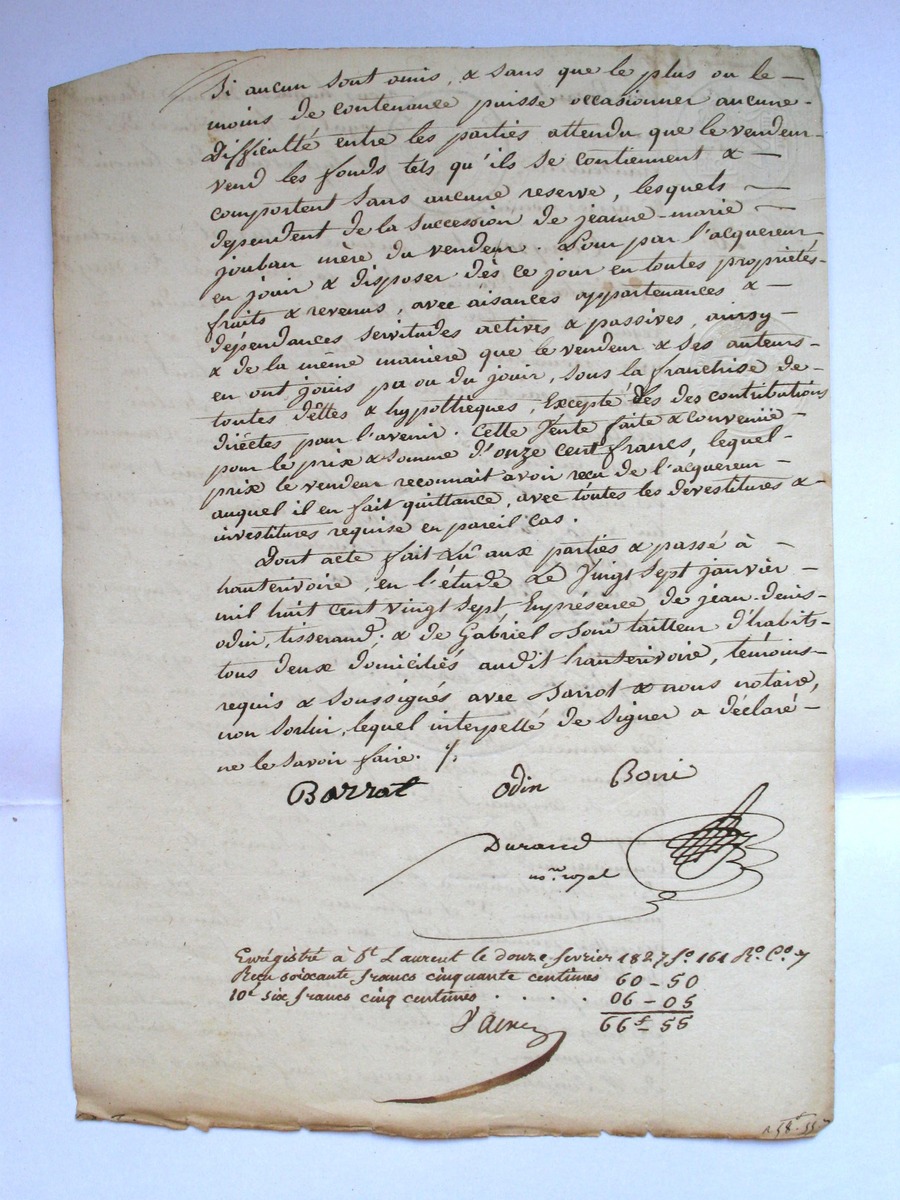 Si aucun sont omis, & sans que le plus ou le -
moins de contenance puisse occasionner aucune -
difficulté entre les parties attendu que le vendeur -
vend les fonds tels qu'ils se contiennent & -
comportent sans aucune reserve, lesquels -
dependent de la succession de jeanne-marie -
jouban mère du vendeur. Pour par l'acquereur
en jouir & disposer dès ce jour en toutes propriétés -
fruits & revenus, avec aisances appartenances & -
dépendances servitudes actives & passives, ainsy -
& de la même manière que le vendeur & ses auteurs -
en ont jouis pu ou du jouir, sous la franchise de -
toutes dêttes & hypothèques, Excepté des contributions
diréctes pour l'avenir. Cette Vente faite & convenüe -
pour le prix & somme d'onze cent francs, lequel -
prix le vendeur reconnait avoir reçu de l'acquereur -
auquel il en fait quittance, avec toutes les devestitures & -
investitures requise en pareil cas.
Dont acte fait Lu aux parties & passé à -
hauterivoire, en l'étude Le Vingt sept janvier -
mil huit cent vingt sept, En présence de jean-denis -
odin, tisserand, & de Gabriel Boni tailleur d'habits -
tous deux domiciliés audit hauterivoire, témoins -
requis & soussignés avec Barrot & nous notaire,
non Sorlin, lequel interpellé de signer a déclaré -
ne le savoir faire. /.
Barrat Odin Boni
Durand
n.re royal
Enrégistré à St Laurent le douze fevrier 1827 fo 161 Ro. Co. 7
Reçu soixante francs cinquante centimes 60 - 50
10e six francs cinq centimes . . . . 06 - 05
66f - 55